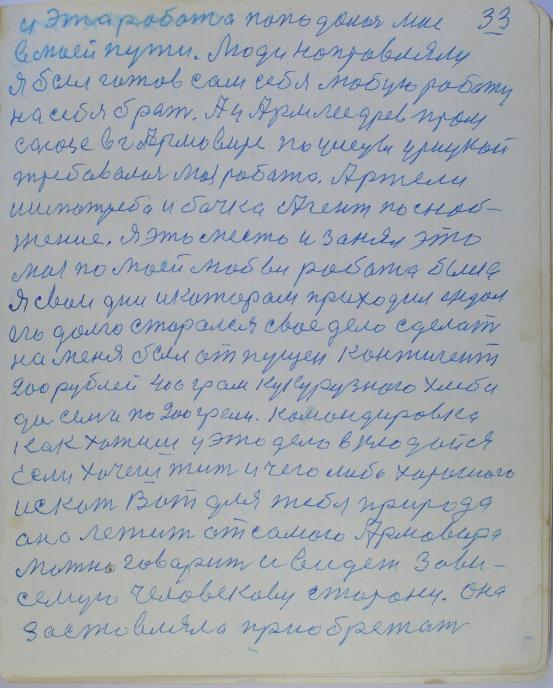 33
и эта работа попадалася мне
в моей пути. Люди направляли
я был готов сам себя любую работу
на себя брат. А у Армлесдревпром
союзе в г Армовире по улецы урицкой
требавалася моя работа. Артели
ширпотреба и бачка Агент по сноб-
жение. Я это место и занял это
моя по моей любви работа была
Я свои дни и каторам приходил ондал
его долго старался свое дело сделат
на меня был отпущен контигент
200 рублей 400 грам кукурузного хлеба
до семи по 200 грам. Командировка
как хотиш у это дело вклодойся
Если хочеш жит и чего либо хорошого
искат Вот для тебя природа
она лежит от самого Армовира
можно говарит и видет Зави-
семую человекову сторону. Она
Застовляла приобретат